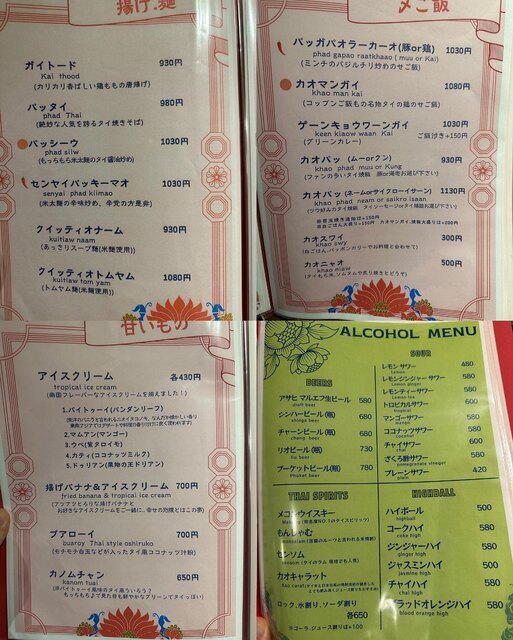 揚げ.麺
ガイトード 930円
Kai thood
(カリカリ香ばしい鶏ももの唐揚げ)
パッタイ 980円
phad Thai
(絶妙な人気を誇るタイ焼きそば)
パッシーウ 1030円
phad siiw
(もっちもち米太麺のタイ醤油炒め)
センヤイパッキーマオ 1030円
senyai phad kiimao
(米太麺の辛味炒め、辛党の方是非)
クイッティオナーム 930円
kuitiaw naam
(あっさりスープ麺(米麺使用))
クイッティオトムヤム 1080円
kuitiaw tom yam
(トムヤム麺(米麺使用))
〆ご飯
パッガパオラーカーオ(豚or鶏) 1030円
phad gapao raatkhaao ( muu or Kai)
(ミンチのバジルチリ炒めのせご飯)
カオマンガイ 1080円
khao man kai
(コップンご飯もの名物タイの鶏のせご飯)
ゲーンキョウワーンガイ 1030円
keen kiaow waan Kai ご飯付き+150円
(グリーンカレー)
カオパッ (ムーorクン) 930円
khao phad muu or Kung
(ファンの多いタイ焼飯 豚or海老お選び下さい)
カオパッ (ネームorサイクローイサーン) 1130円
khao phad neam or saikro isaan
カオスワイ 300円
khao swy
(白ごはん、パッポンガリーでお料理と合わせて)
カオニャオ 500円
khao niaw
甘いもの
アイスクリーム 各430円
tropical ice cream
(南国フレーバーなアイスクリームを揃えました！)
1.バイトゥーイ(パンダンリーフ)
2.マムアン(マンゴー)
3.ウベ(紫タロイモ)
4.カティ(ココナッツミルク)
5.ドゥリアン(果物の王ドリアン)
揚げバナナ&アイスクリーム 700円
fried banana & tropical ice cream
(アツアツとろりな揚げバナナと
お好きなアイスクリームをご一緒に、幸せの効果とはこの事)
ブアローイ 700円
buaroy Thai style oshiruko
(モチモチ白玉などが入ったタイ風ココナッツ汁粉)
カノムチャン 650円
kanom tuai
ALCOHOL MENU
BEERS
アサヒ マルエフ生ビール 580
draft beer
シンハービール(瓶) 680
shinga beer
チャーンビール(瓶) 680
chang beer
リオビール(瓶) 730
lio beer
プーケットビール(瓶) 780
Phuket beer
SOUR
レモン サワー 480
Lemon
レモンジンジャー サワー 580
Lemon ginger
レモンティー サワー 580
Lemon tea
トロピカルサワー 600
tropical
マンゴーサワー 580
mango
ココナッツサワー 580
coconut
チャイサワー 580
chai
ざくろ酢サワー 580
pomegranate vinegar
プレーンサワー 420
plain
THAI SPIRITS
メコンウイスキー
もんしゃむ
センソム
カオキャラット
ロック、水割り、ソーダ割り
各650
※コーラ、ジュース割りは+100
HIGHBALL
ハイボール 500
highball
コークハイ 580
coke high
ジンジャーハイ 580
ginger high
ジャスミンハイ 500
jasmine high
チャイハイ 580
chai high
ブラッドオレンジハイ 580
blood orange high